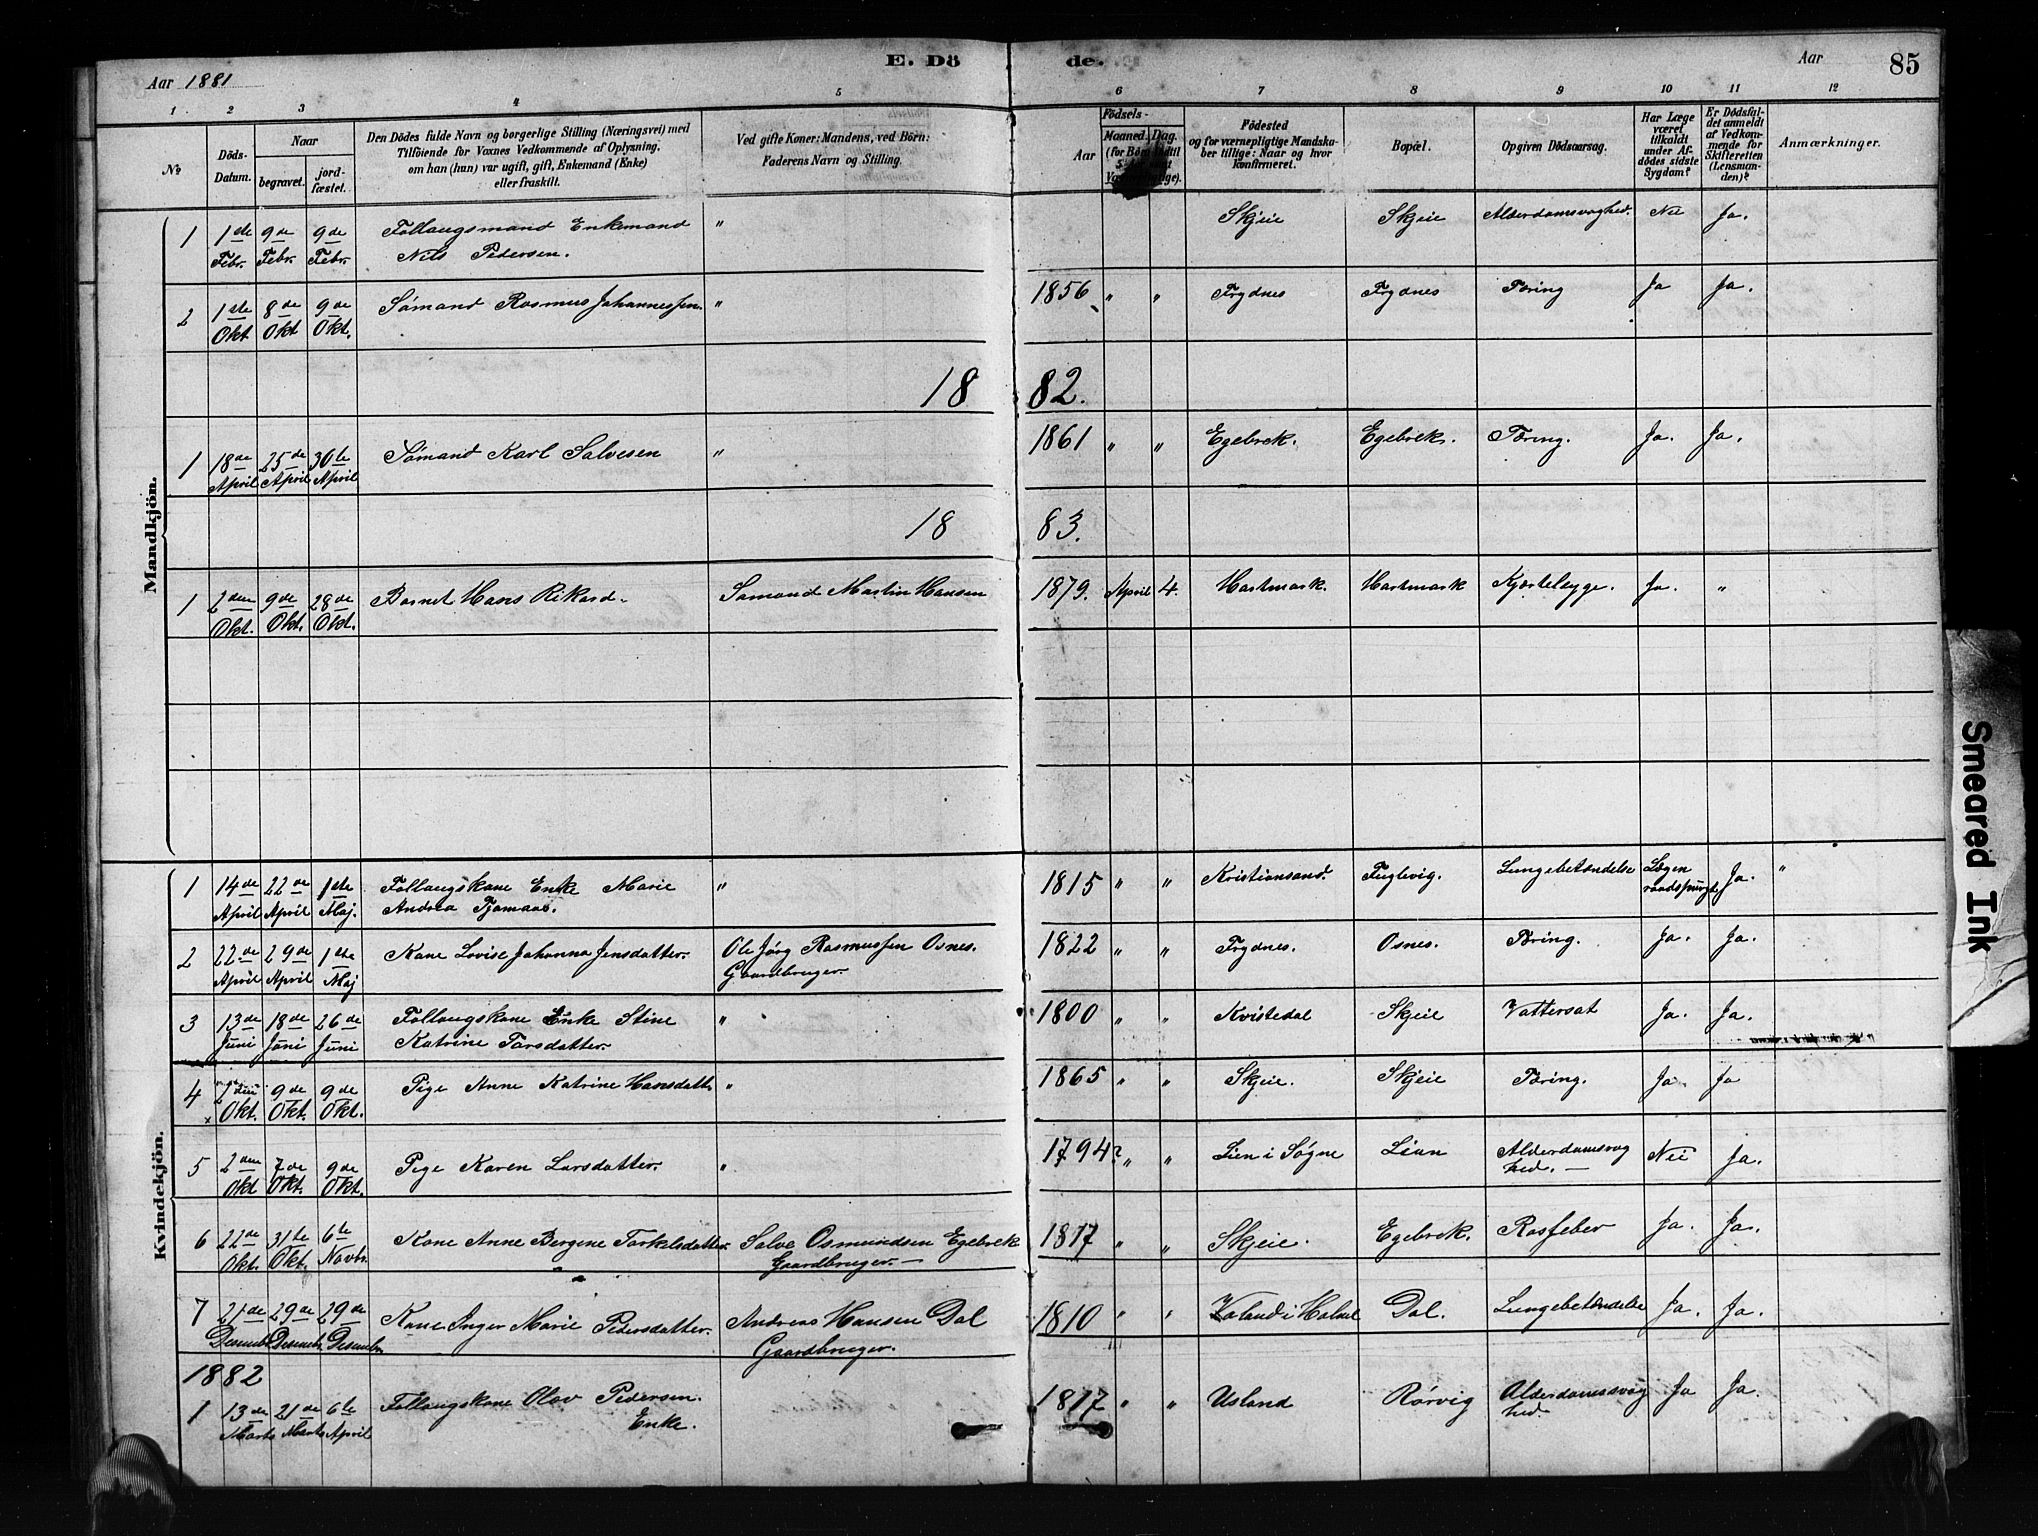 Aar 1881
E. Dö
de.
Aar
85
1 2 3 4 5 6 7 8 9 10 11 12
№
Döds-Datum.
Naar
begravet.
jord-fæstet.
Den Dödes fulde Navn og borgerlige Stilling (Næringsvei) med
Tilföiende for Voxnes Vedkommende af Oplysning,
om han (hun) var ugift, gift, Enkemand (Enke)
eller fraskilt.
Ved gifte Koner: Mandens, ved Börn:
Faderens Navn og Stilling.
Födsels-
Aar
Maaned.
Dag.
Födested
og for værnepligtige Mandska-
ber tillige: Naar og hvor
konfirmeret.
Bopæl.
Opgiven Dödsaarsag.
Har Læge
været
tilkaldt
under Af-
dödes sidste
Sygdom?
Er Dödsfal-
det anmeldt
af Vedkom-
mende for
Skifteretten
(Lensman-
den)?
Anmærkninger.
Mandkjön.
1 1ste Febr. 9de Febr. 9de Febr. Follaugsmand Enkemand " Skjeie Skjeie Alderdomsvaghed. Nei Ja.
Nils Pedersen.
2 1ste Okt. 8de Okt 9de Okt. Sømand Rasmus Johannessen. " 1856 " " Frydnes Frydnes Tæring Ja Ja.
18 82.
1 18de April 25de April 30te April Sømand Karl Salvesen " 1861 " " Egebrek. Egebrek. Tæring. Ja. Ja.
18 83.
1 2den Okt. 9de Okt. 28de Okt. Barnet Hans Rikard. Sømand Martin Hansen 1879. April 4. Hartmark. Hartmark Kjertelsyge. Ja. "
Kvindekjön.
1 14de April 22de April 1ste Maj. Follaugskone Enke Marie " 1815 " " Kristiansand. Fuglevig. Lungebetændelse Lægen raadspurgt. Ja. "
Andrea Tjomaas.
2 22de April 29de April 1ste Maj Kone Lovise Johanna Jensdatter. Ole Jørg Rasmussen Osnes. 1822 " " Frydnes. Osnes. Tæring. Ja. Ja.
Gaardbruger.
3 13de Juni 18de Juni 26de Juni Follaugskone Enke Stine " 1800 " " Kvistedal Skjeie Vattersot Ja. Ja.
Katrine Tarsdatter.
4 7den Okt. 9de Okt. 9de Okt. Pige Anne Katrine Hansdatt. " 1865 " " Skjeie. Skjeie Tæring. Ja. Ja
5 2den Okt 7de Okt. 9de Okt. Pige Karen Larsdatter. " 1794? " " Lien i Søgne Lian Alderdomsvag Nei Ja.
hed.
6 22de Okt. 31te Okt. 6te Novbr. Kone Anne Bergene Torkelsdatter. Salve Osmundsen Egebrek 1817 " " Skjeie. Egebrek. Rosfeber Ja. Ja.
Gaardbruger.
7 21de 29de 29de Kone Inger Marie Pedersdatter. Andreas Hansen Dal 1810 " " Dal. Lungebetændelse Ja. Ja.
Gaardbruger.
1882
1 13de Marts 21de Marts 6te April Follaugskone Olav Pedersen. 1817 " " Usland Rørvig Alderdomssvag Ja Ja.
Enke. hed.
Smeared Ink